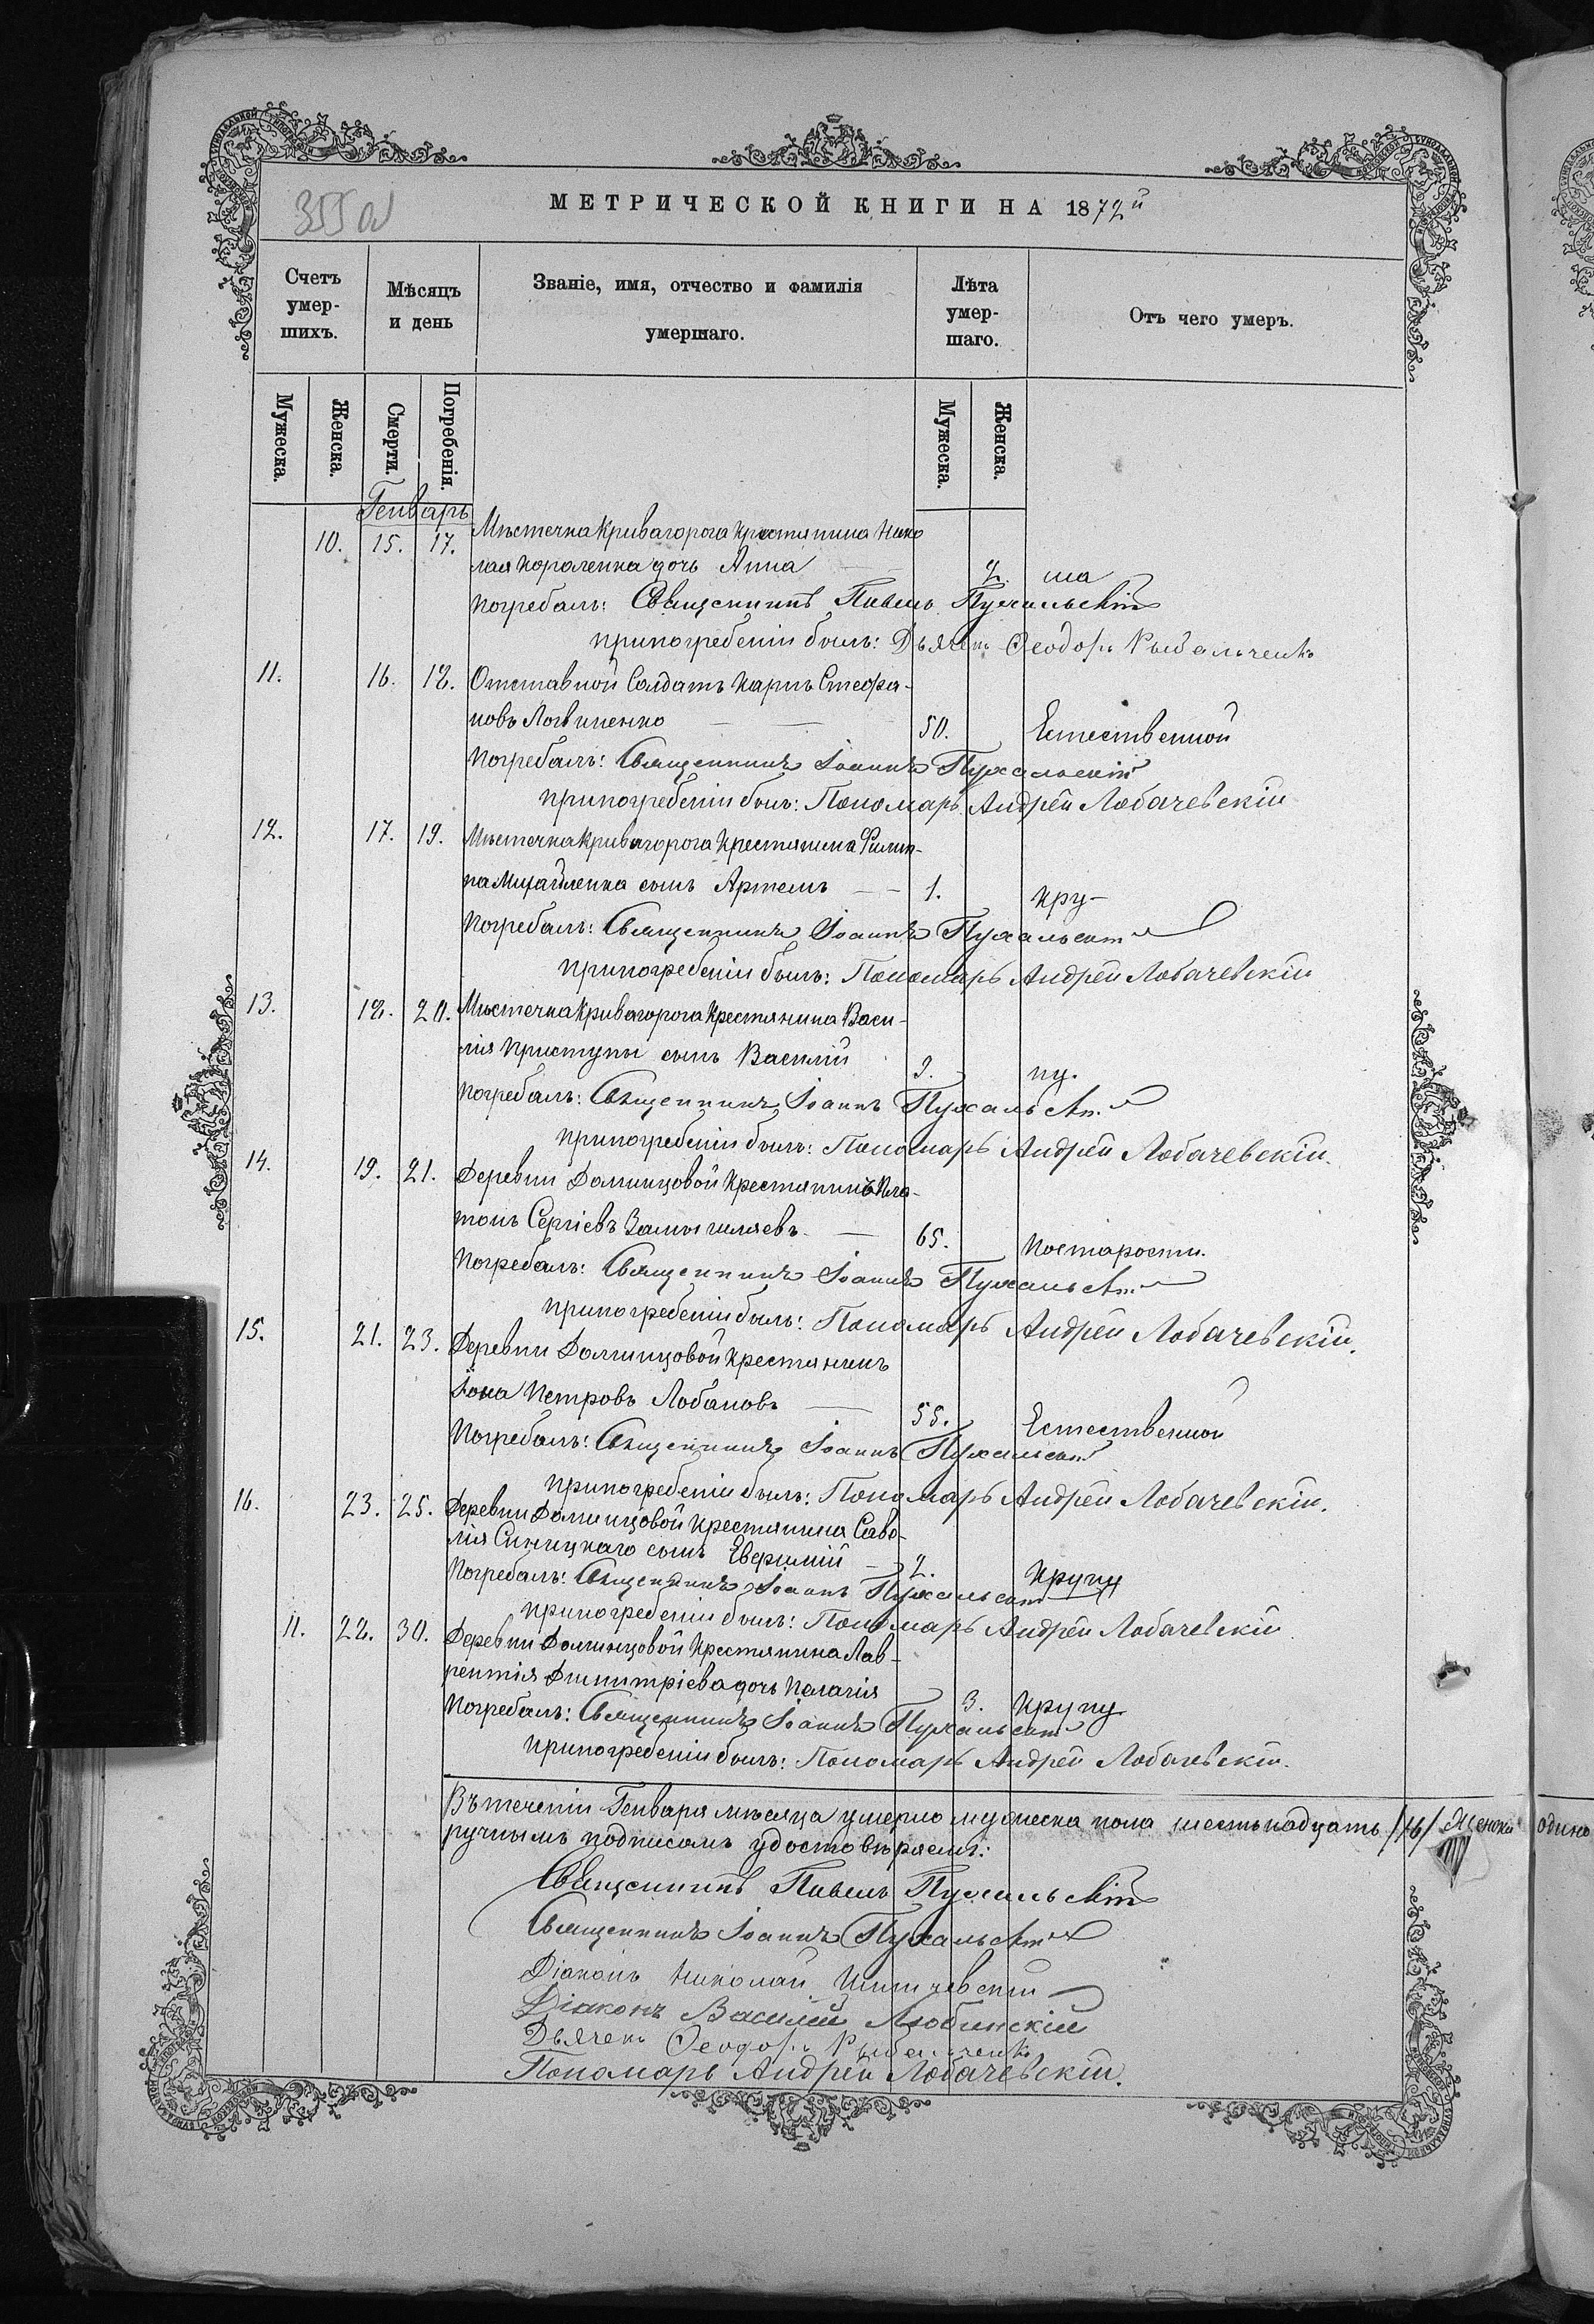 355 об
МЕТРИЧЕСКОЙ КНИГИ НА 1872й
Счетъ умер-шихъ.
Мѣсяцъ и день
Званіе, имя, отчество и фамилія умершаго.
Лѣта умер-шаго.
Отъ чего умеръ.
Мужеска.
Женска.
Смерти.
Погребенія.
Мужеска.
Женска.
Генварь
10. 15. 17. Мѣстечка Кривагорога Крестянина Нико
лая Короленка дочь Анна — 2.
Погребалъ: Священникъ Павелъ Пухальскій
при погребеніи былъ: Дьячекъ Ѳеодоръ Рыбальченко
11. 16. 18. Отставной Солдатъ Карпъ Стефа-
новъ Логвиненко — — 50. Естественной
Погребалъ: Священникъ Іоаннъ Пухальскій
при погребеніи былъ: Пономарь Андрей Лобачевскій
12. 17. 19. Мѣстечка Кривагорога Крестянина Филип-
па Михайленка сынъ Артемъ — — 1. Кру-
Погребалъ: Священникъ Іоаннъ Пухальскій
при погребеніи былъ: Пономарь Андрей Лобачевскій
13. 18. 20. Мѣстечка Кривагорога Крестянина Васи-
лія Приступы сынъ Василій 9. пу.
Погребалъ: Священникъ Іоаннъ Пухальскій
при погребеніи былъ: Пономарь Андрей Лобачевскій.
14. 19. 21. Деревни Долинцовой Крестянинъ Пла-
тонъ Сергіевъ Замышляевъ. — 65. Постарости.
Погребалъ: Священникъ Іоаннъ Пухальскій
при погребеніи былъ: Пономарь Андрей Лобачевскій.
15. 21. 23. Деревни Долинцовой Крестянинъ
Іона Петровъ Лобановъ — 55. Естественной
Погребалъ: Священникъ Іоаннъ Пухальскій
при погребеніи былъ: Пономарь Андрей Лобачевскій.
16. 23. 25. Деревни Долинцовой Крестянина Саве-
лія Синицкаго сынъ Евфимій — 2. Крупу
Погребалъ: Священникъ Іоаннъ Пухальскій
при погребеніи былъ: Пономарь Андрей Лобачевскій
11. 28. 30. Деревни Долинцовой Крестянина Лав-
рентія Димитріева дочь Пелагія 3. Крупу
Погребалъ: Священникъ Іоаннъ Пухальскій
при погребеніи былъ: Пономарь Андрей Лобачевскій.
Въ теченіи Генваря мѣсяца умерло мужеска пола шестьнадцать /16/ Женска одино
ручнымъ подписомъ удостовѣряемъ:
Священникъ Павелъ Пухальскій
Священникъ Іоаннъ Пухальскій
Діаконъ Николай
Діаконъ Василій Любинскій
Дьячекъ Ѳеодоръ Рыбальченко
Пономарь Андрей Лобачевскій.